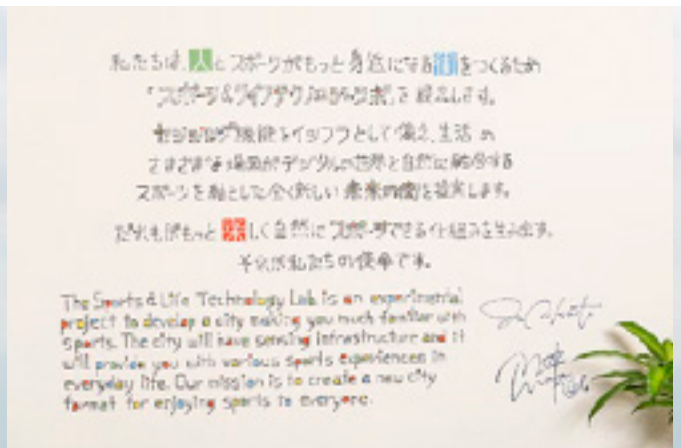 私たちは、人とスポーツがもっと身近になる街をつくるため
「スポーツ&ライフテクノロジーラボ」を設立します。
センシング技術をインフラとして備え、生活の
さまざまな場面がデジタルの世界と自然に融合する
スポーツを軸とした全く新しい未来の街を提案します。
だれもがもっと楽しく自然にスポーツできる仕組みを生み出す。
それが私たちの使命です。
The Sports & Life Technology Lab is an experimental
project to develop a city making you much familiar with
sports. The city will have sensing infrastructure and it
will provide you with various sports experiences in
everyday life. Our mission is to create a new city
format for enjoying sports to everyone.